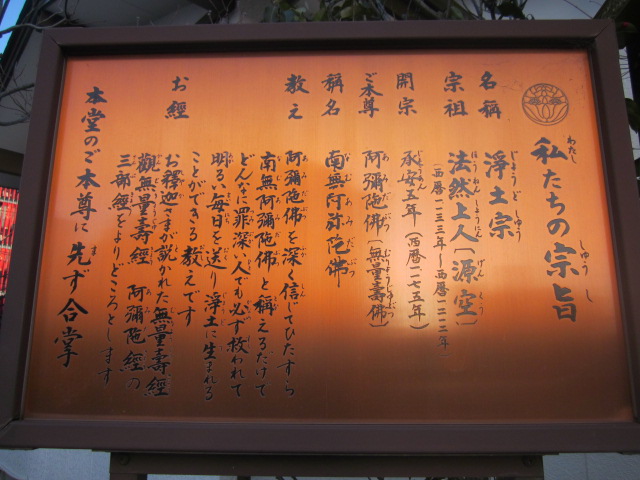 私たちの宗旨
名稱 淨土宗
宗祖 法然上人(源空)
(西暦一一三三年~西暦一二一二年)
開宗 承安五年(西暦一一七五年)
ご本尊 阿彌陀佛(無量壽佛)
稱名 南無阿弥陀佛
教え 阿彌陀佛を深く信じひたすら
南無阿彌陀佛と稱えるだけで
どんなに罪深い人でも必ず救われて
明るい毎日を送り淨土に生まれる
ことができる教えです
お經 お釋迦さまが説かれた無量壽經
觀無量壽經 阿彌陀經の
三部經をよりどころとします
本堂のご本尊に先ず合掌